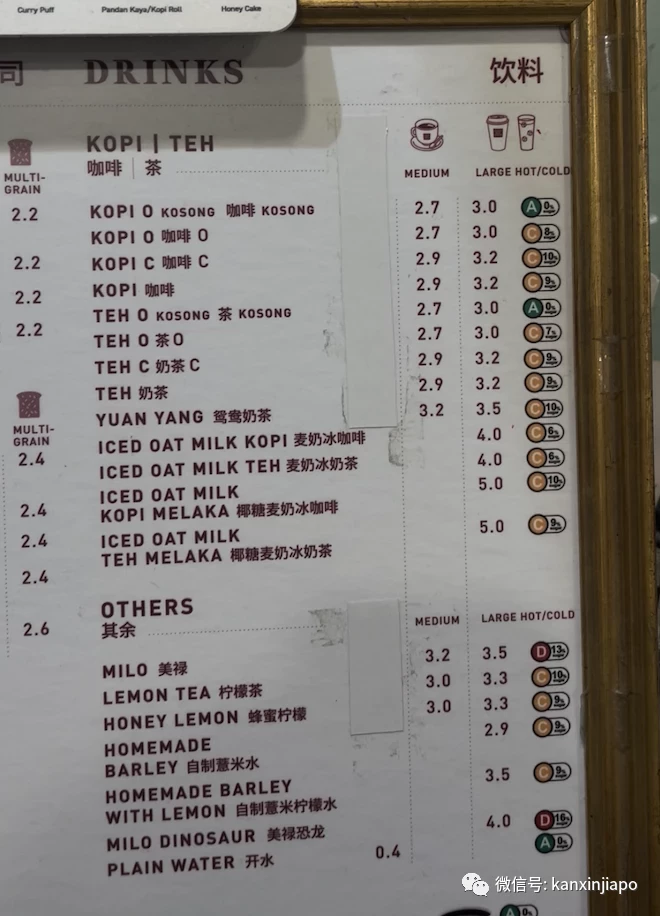 Curry Puff Pandan Kaya/Kopi Roll Honey Cake
司 DRINKS 饮料
KOPI | TEH
咖啡 | 茶
MEDIUM LARGE HOT/COLD
MULTI-
GRAIN
2.2 KOPI O KOSONG 咖啡 KOSONG 2.7 3.0 A 0%
KOPI O 咖啡 O 2.7 3.0 C 8%
2.2 KOPI C 咖啡 C 2.9 3.2 C 10%
2.2 KOPI 咖啡 2.9 3.2 C 9%
TEH O KOSONG 茶 KOSONG 2.7 3.0 A 0%
2.2 TEH O 茶 O 2.7 3.0 C 7%
TEH C 奶茶 C 2.9 3.2 C 9%
TEH 奶茶 2.9 3.2 C 9%
YUAN YANG 鸳鸯奶茶 3.2 3.5 C 10%
MULTI-
GRAIN
ICED OAT MILK KOPI 麦奶冰咖啡 4.0 C 6%
2.4 ICED OAT MILK TEH 麦奶冰奶茶 4.0 C 6%
ICED OAT MILK 5.0 C 10%
2.4 KOPI MELAKA 椰糖麦奶冰咖啡
2.4 ICED OAT MILK 5.0 C 9%
TEH MELAKA 椰糖麦奶冰奶茶
2.4
OTHERS
2.6 其余
MEDIUM LARGE HOT/COLD
MILO 美禄 3.2 3.5 D 13%
LEMON TEA 柠檬茶 3.0 3.3 C 10%
HONEY LEMON 蜂蜜柠檬 3.0 3.3 C 9%
HOMEMADE 2.9 C 9%
BARLEY 自制薏米水
HOMEMADE BARLEY 3.5 C 9%
WITH LEMON 自制薏米柠檬水
MILO DINOSAUR 美禄恐龙 4.0 D 16%
PLAIN WATER 开水 0.4 A 0%
A 0%
微信号: kanxinjiapo